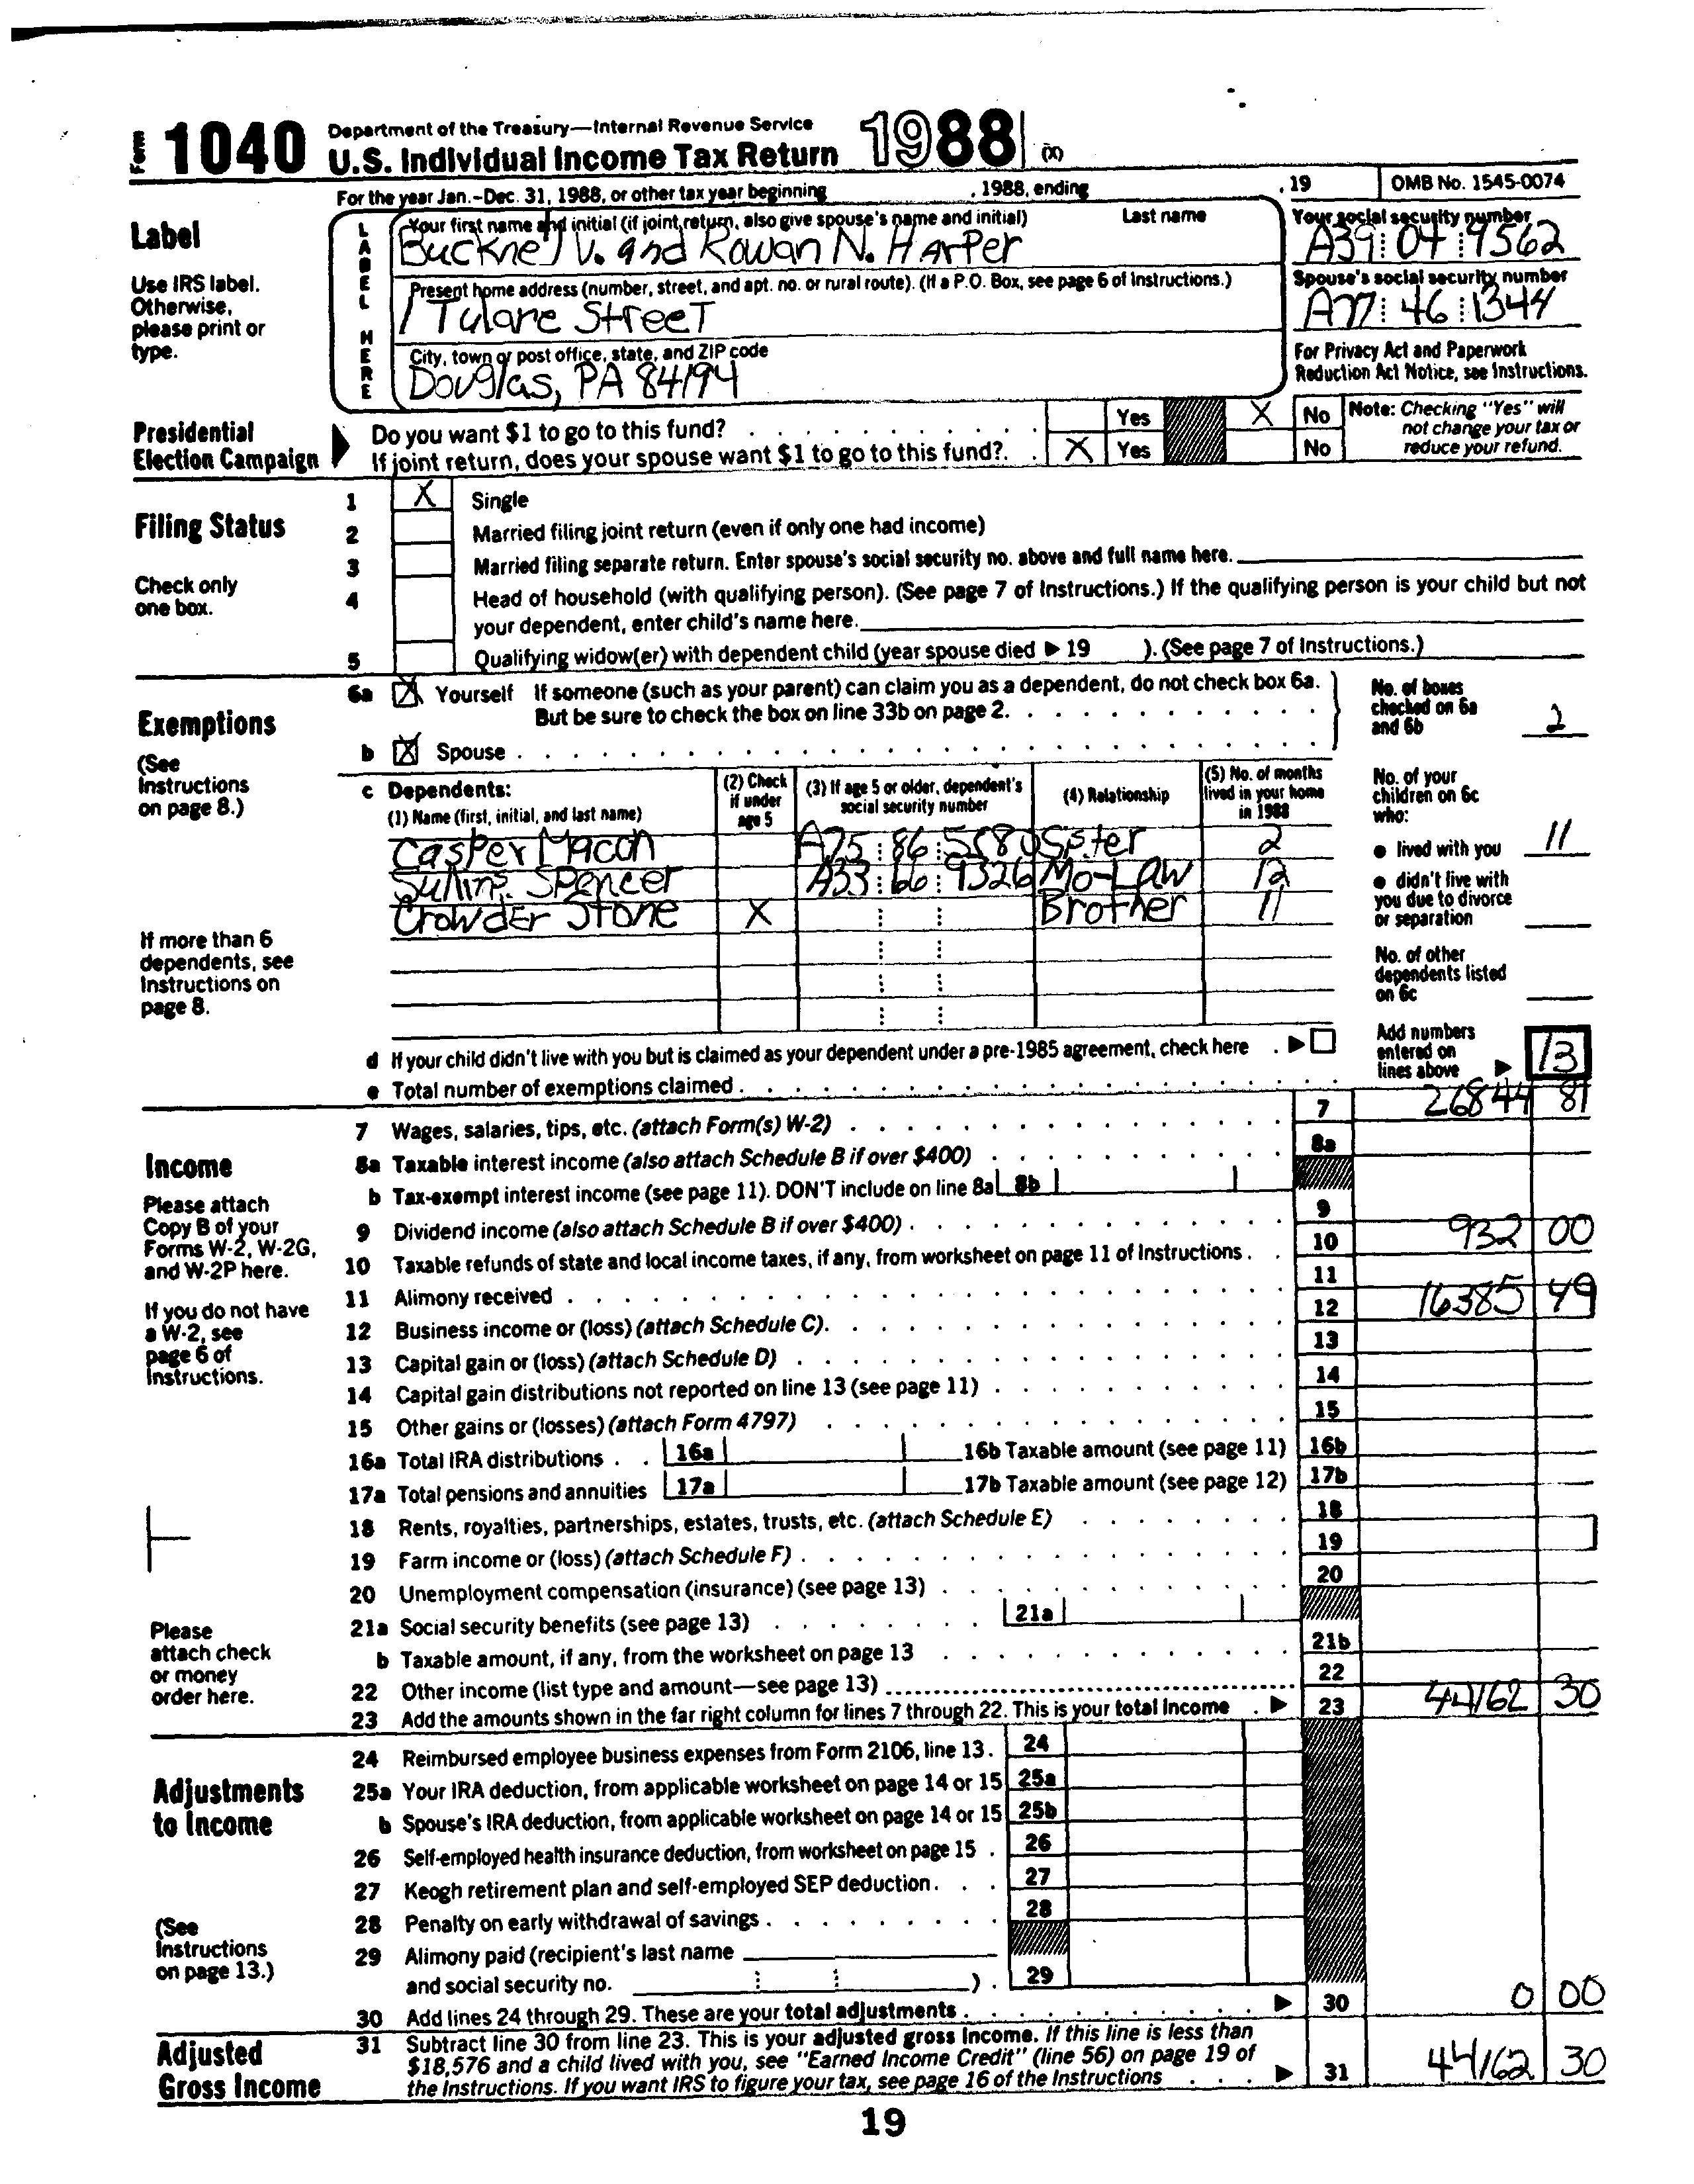 Form 1040 Department of the Treasury—Internal Revenue Service
U.S. Individual Income Tax Return 1988 (X)
For the year Jan.–Dec. 31, 1988, or other tax year beginning , 1988, ending , 19 OMB No. 1545-0074
Label
Use IRS label.
Otherwise,
please print or
type.
LABEL HERE
Your first name and initial (if joint return, also give spouse's name and initial) Last name
Bucknel V. and Rowan N. Harper
Your social security number
A39 04 9562
Present home address (number, street, and apt. no. or rural route). (If a P.O. Box, see page 6 of Instructions.)
1 Tulare Street
Spouse's social security number
A77 46 1344
City, town or post office, state, and ZIP code
Douglas, PA 84194
For Privacy Act and Paperwork
Reduction Act Notice, see Instructions.
Presidential
Election Campaign
Do you want $1 to go to this fund? Yes X No
If joint return, does your spouse want $1 to go to this fund? X Yes No
Note: Checking "Yes" will
not change your tax or
reduce your refund.
Filing Status
Check only
one box.
1 X Single
2 Married filing joint return (even if only one had income)
3 Married filing separate return. Enter spouse's social security no. above and full name here.
4 Head of household (with qualifying person). (See page 7 of Instructions.) If the qualifying person is your child but not
your dependent, enter child's name here.
5 Qualifying widow(er) with dependent child (year spouse died ▶ 19 ). (See page 7 of Instructions.)
Exemptions
(See
Instructions
on page 8.)
6a X Yourself If someone (such as your parent) can claim you as a dependent, do not check box 6a.
But be sure to check the box on line 33b on page 2.
b X Spouse
No. of boxes
checked on 6a
and 6b 2
c Dependents:
(1) Name (first, initial, and last name)
(2) Check
if under
age 5
(3) If age 5 or older, dependent's
social security number
(4) Relationship
(5) No. of months
lived in your home
in 1988
Casper Macon A75 86 5580 Sister 2
Sullins Spencer A33 66 9326 Mo-Law 12
Crowder Stone X Brother 11
If more than 6
dependents, see
Instructions on
page 8.
No. of your
children on 6c
who:
● lived with you 11
● didn't live with
you due to divorce
or separation
No. of other
dependents listed
on 6c
d If your child didn't live with you but is claimed as your dependent under a pre-1985 agreement, check here ▶
e Total number of exemptions claimed
Add numbers
entered on
lines above ▶ 13
Income
Please attach
Copy B of your
Forms W-2, W-2G,
and W-2P here.
If you do not have
a W-2, see
page 6 of
Instructions.
Please
attach check
or money
order here.
7 Wages, salaries, tips, etc. (attach Form(s) W-2) 7 26844 81
8a Taxable interest income (also attach Schedule B if over $400) 8a
b Tax-exempt interest income (see page 11). DON'T include on line 8a 8b
9 Dividend income (also attach Schedule B if over $400) 9
10 Taxable refunds of state and local income taxes, if any, from worksheet on page 11 of Instructions 10 932 00
11 Alimony received 11
12 Business income or (loss) (attach Schedule C) 12 16385 49
13 Capital gain or (loss) (attach Schedule D) 13
14 Capital gain distributions not reported on line 13 (see page 11) 14
15 Other gains or (losses) (attach Form 4797) 15
16a Total IRA distributions 16a 16b Taxable amount (see page 11) 16b
17a Total pensions and annuities 17a 17b Taxable amount (see page 12) 17b
18 Rents, royalties, partnerships, estates, trusts, etc. (attach Schedule E) 18
19 Farm income or (loss) (attach Schedule F) 19
20 Unemployment compensation (insurance) (see page 13) 20
21a Social security benefits (see page 13) 21a
b Taxable amount, if any, from the worksheet on page 13 21b
22 Other income (list type and amount—see page 13) 22
23 Add the amounts shown in the far right column for lines 7 through 22. This is your total income ▶ 23 44162 30
Adjustments
to Income
(See
Instructions
on page 13.)
24 Reimbursed employee business expenses from Form 2106, line 13. 24
25a Your IRA deduction, from applicable worksheet on page 14 or 15 25a
b Spouse's IRA deduction, from applicable worksheet on page 14 or 15 25b
26 Self-employed health insurance deduction, from worksheet on page 15 26
27 Keogh retirement plan and self-employed SEP deduction 27
28 Penalty on early withdrawal of savings 28
29 Alimony paid (recipient's last name
and social security no. ) 29
30 Add lines 24 through 29. These are your total adjustments ▶ 30 0 00
Adjusted
Gross Income
31 Subtract line 30 from line 23. This is your adjusted gross income. If this line is less than
$18,576 and a child lived with you, see "Earned Income Credit" (line 56) on page 19 of
the Instructions. If you want IRS to figure your tax, see page 16 of the Instructions ▶ 31 44162 30
19